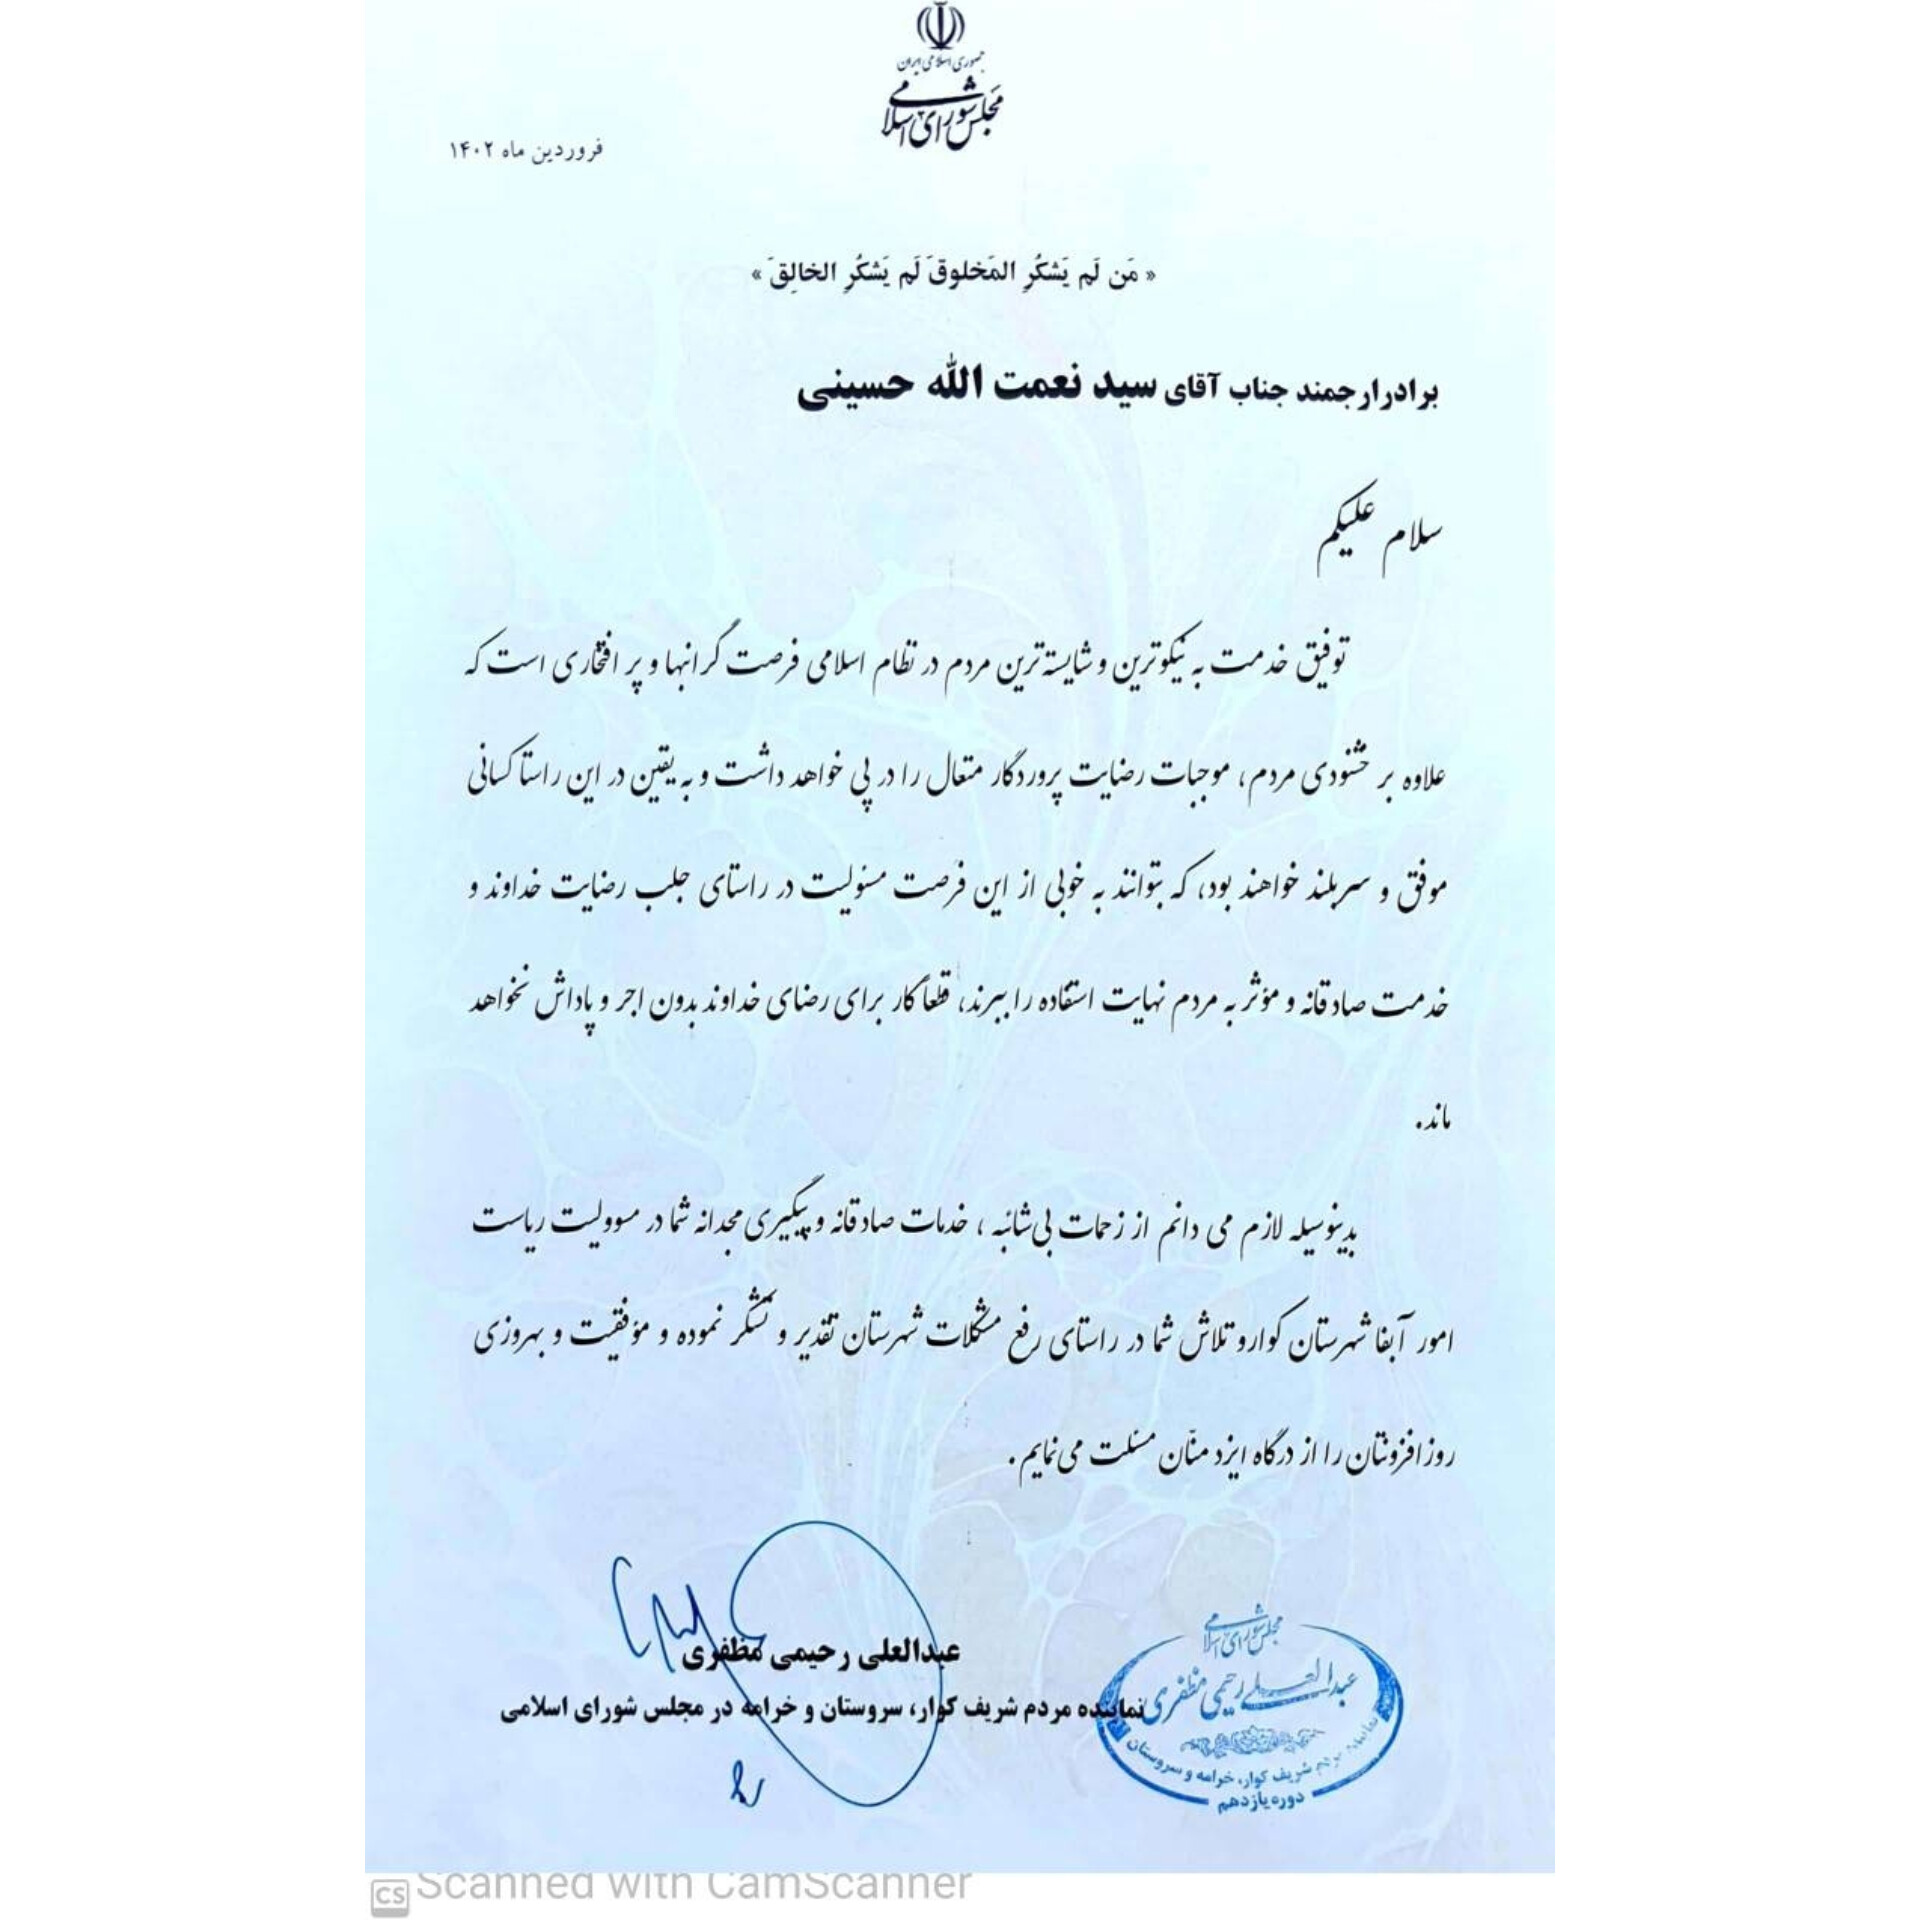 جمهوری اسلامی ایران
مجلس شورای اسلامی
فروردین ماه ۱۴۰۲
« مَن لَم یَشکُرِ المَخلوقَ لَم یَشکُرِ الخالِقَ »
برادرارجمند جناب آقای سید نعمت الله حسینی
سلام علیکم
توفیق خدمت به نیکوترین و شایسته‌ترین مردم در نظام اسلامی فرصت گرانبها و پر افتخاری است که
علاوه بر خشنودی مردم، موجبات رضایت پروردگار متعال را در پی خواهد داشت و به یقین در این راستا کسانی
موفق و سربلند خواهند بود، که بتوانند به خوبی از این فرصت مسئولیت در راستای جلب رضایت خداوند و
خدمت صادقانه و مؤثر به مردم نهایت استفاده را ببرند، قطعاً کار برای رضای خداوند بدون اجر و پاداش نخواهد
ماند.
بدینوسیله لازم می دانم از زحمات بی‌شائبه ، خدمات صادقانه و پیگیری مجدانه شما در مسوولیت ریاست
امور آبفا شهرستان کوار و تلاش شما در راستای رفع مشکلات شهرستان تقدیر و تشکر نموده و مؤفقیت و بهروزی
روز افزونتان را از درگاه ایزد منّان مسئلت می‌نمایم.
عبدالعلی رحیمی مظفری
نماینده مردم شریف کوار، سروستان و خرامه در مجلس شورای اسلامی
مجلس شورای اسلامی
عبدالعلی رحیمی مظفری
نماینده مردم شریف کوار، خرامه و سروستان
دوره یازدهم
CS Scanned with CamScanner